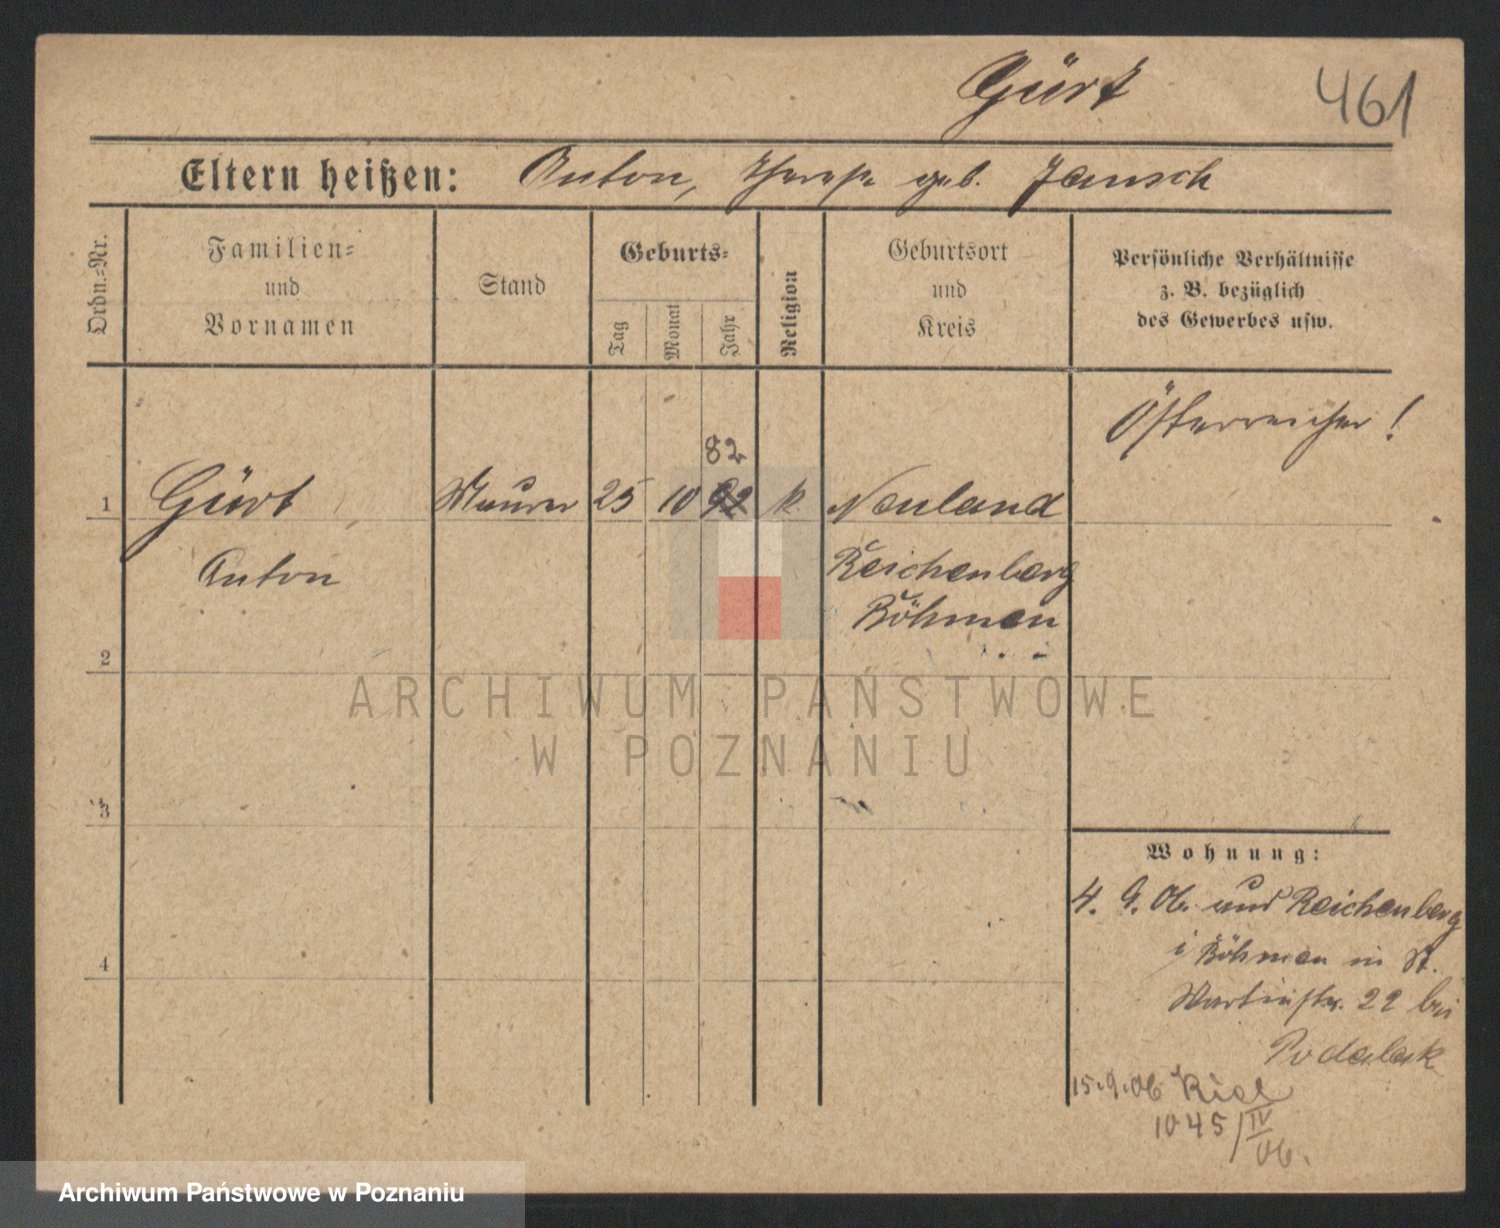 Gürt 461
Eltern heißen: Anton, Therese geb. Jansch
Ordn.=Nr.
Familien=
und
Vornamen
Stand
Geburts=
Tag
Monat
Jahr
Religion
Geburtsort
und
Kreis
Persönliche Verhältnisse
z. B. bezüglich
des Gewerbes usw.
Österreicher!
82
1 Gürt Maurer 25 10 92 k. Neuland
Anton Reichenberg
Böhmen
2
ARCHIWUM PAŃSTWOWE
W POZNANIU
3
Wohnung:
4. 9. 06. und Reichenberg
i Böhmen in St.
4
Martinstr. 22 bei
Podalak
15.9.06 Kiel
1045/IV
06.
Archiwum Państwowe w Poznaniu